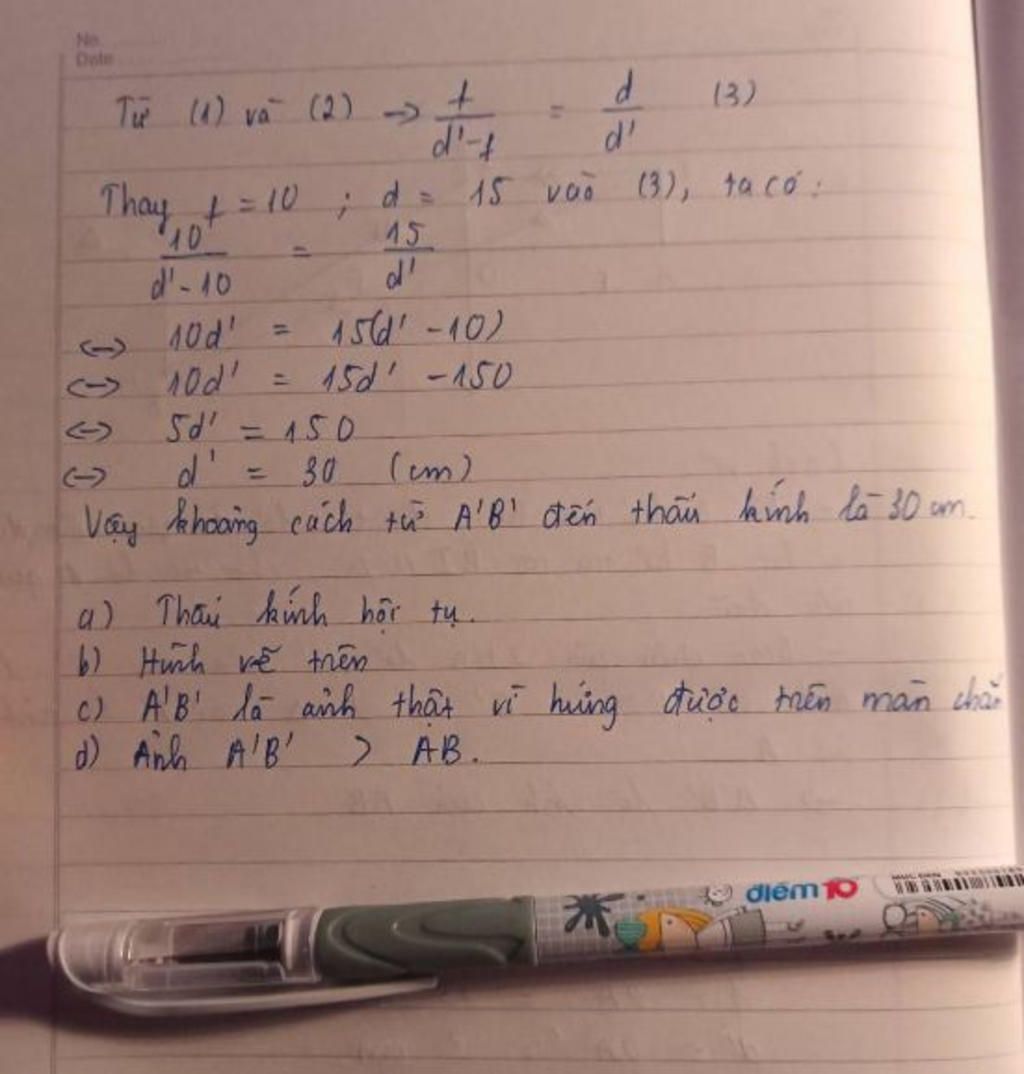 No.
Date
Từ (1) và (2) → f/(d'-f) = d/d' (3)
Thay f = 10 ; d = 15 vào (3), ta có:
10/(d'-10) = 15/d'
<-> 10d' = 15(d' - 10)
<-> 10d' = 15d' - 150
<-> 5d' = 150
<-> d' = 30 (cm)
Vậy khoảng cách từ A'B' đến thấu kính là 30 cm.
a) Thấu kính hội tụ.
b) Hình vẽ trên
c) A'B' là ảnh thật vì hứng được trên màn chắn
d) Ảnh A'B' > AB.
điểm 10